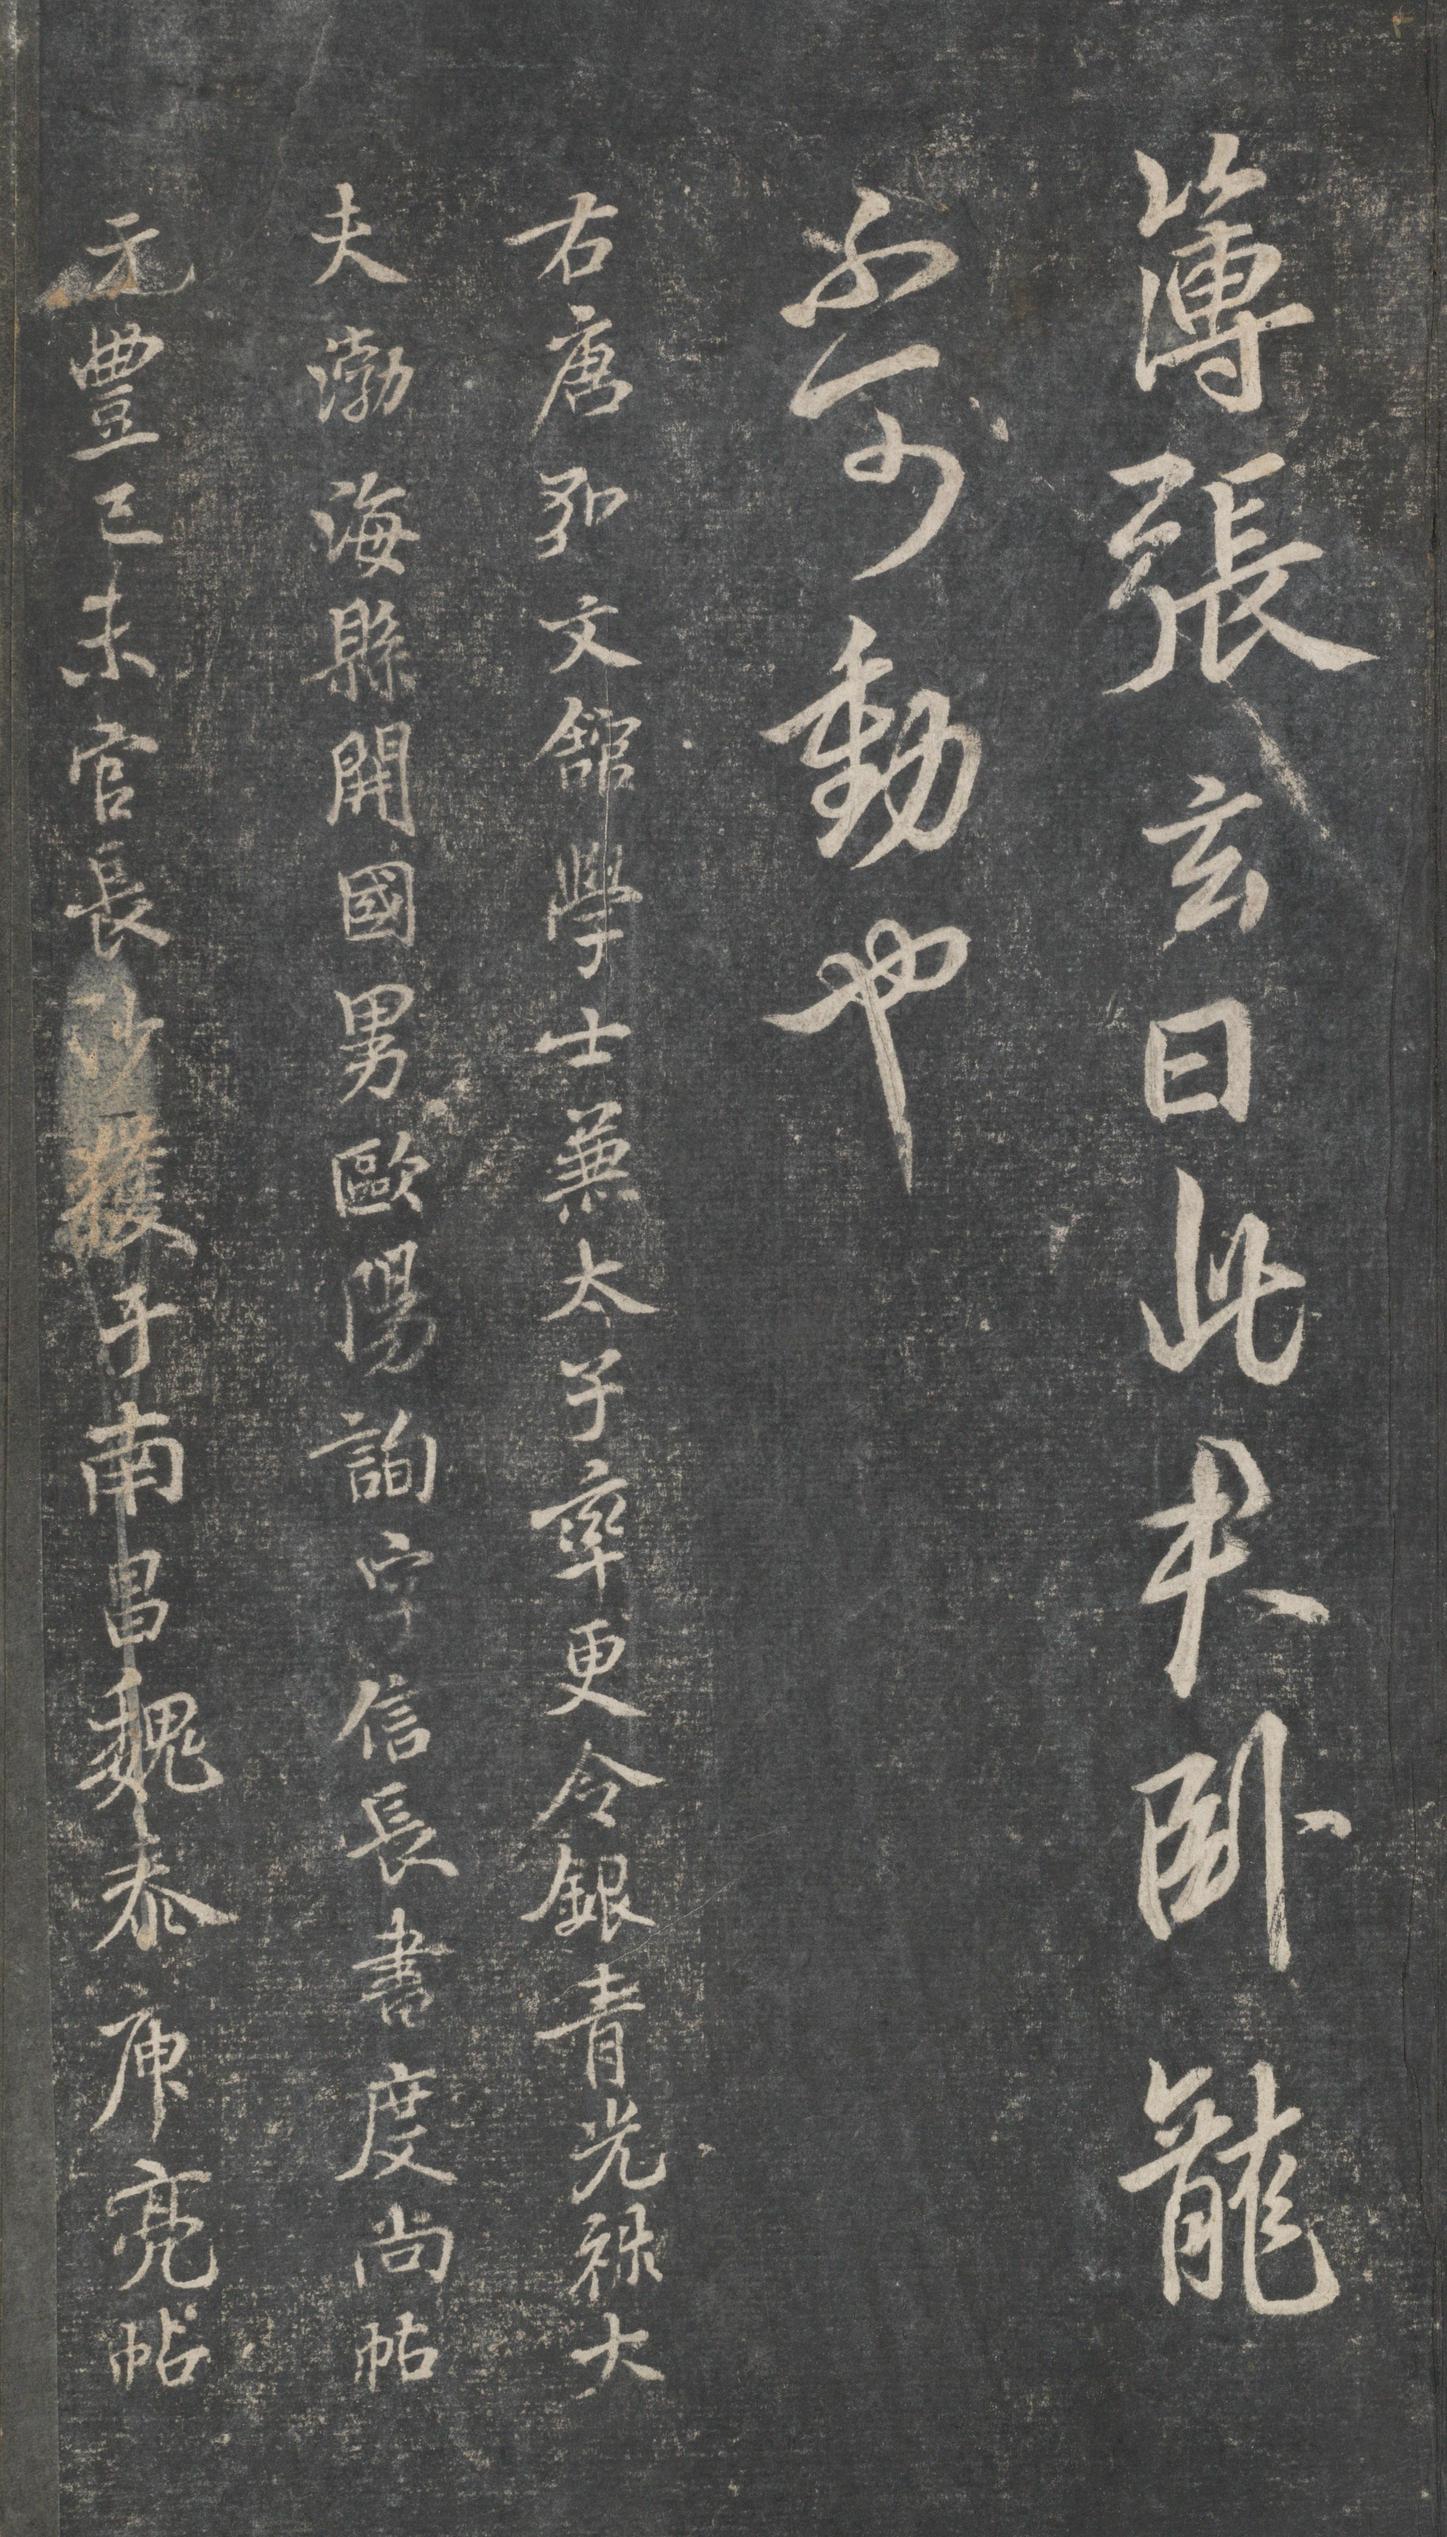 簿張玄曰此人卧龍
不可動也
右唐弘文館學士兼太子率更令銀青光祿大
夫渤海縣開國男歐陽詢字信長書度尚帖
元豐己未官長沙獲于南昌魏泰庾亮帖